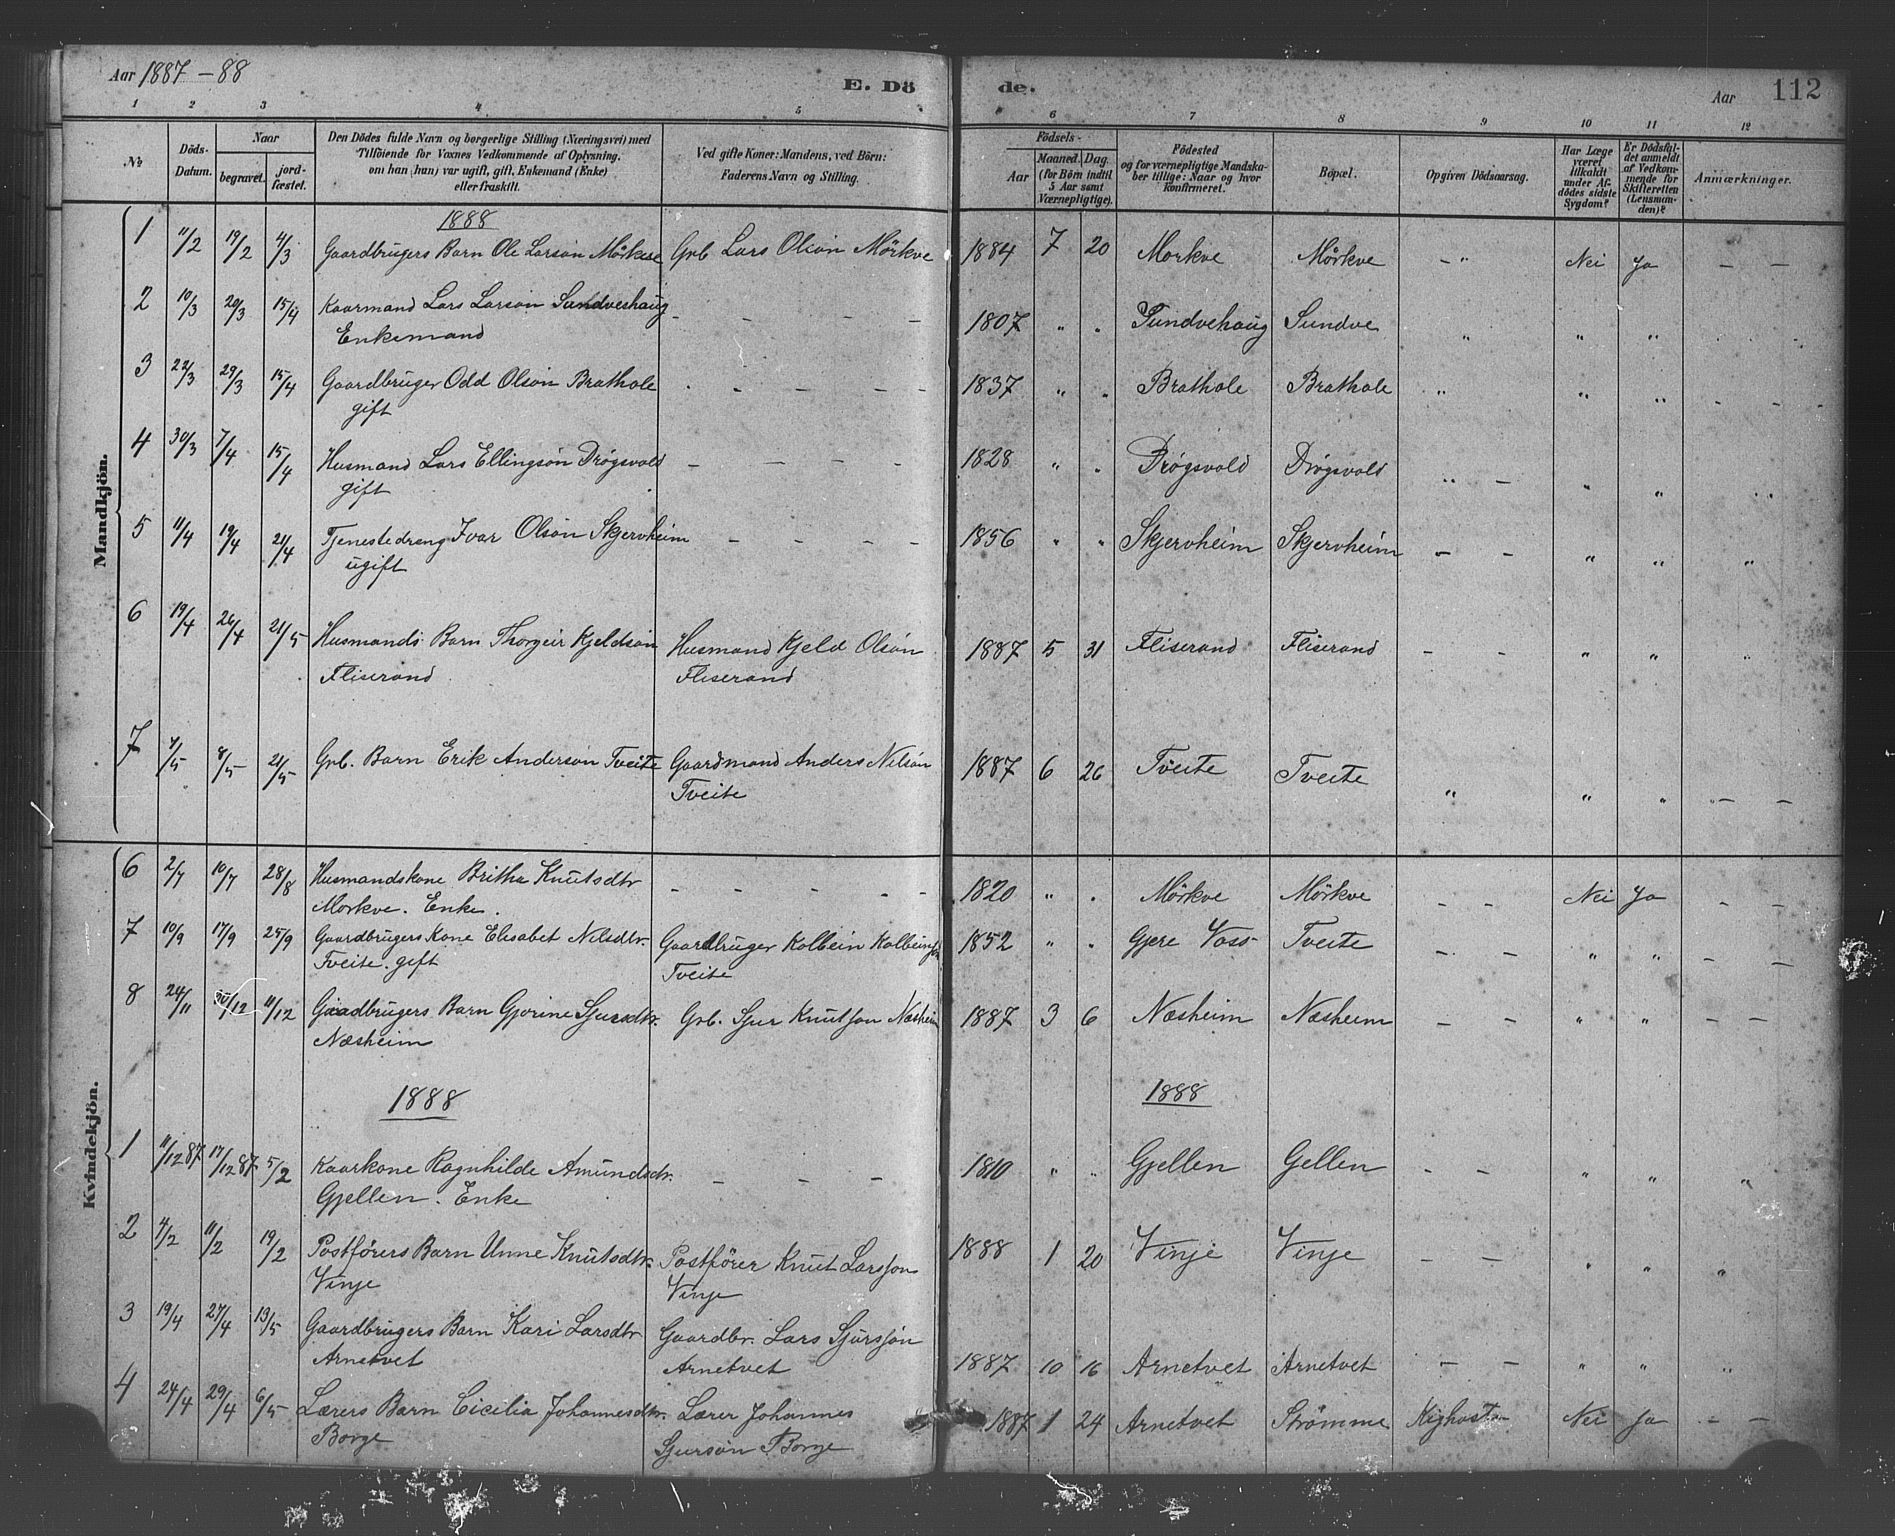 Aar 1887 – 88
E. Dö
de.
Aar 112
1 2 3 4 5 6 7 8 9 10 11 12
No
Döds-
Datum.
Naar
begravet.
jord-
fæstet.
Den Dödes fulde Navn og borgerlige Stilling (Næringsvei) med
Tilföiende for Voxnes Vedkommende af Oplysning,
om han (hun) var ugift, gift, Enkemand (Enke)
eller fraskilt.
Ved gifte Koner: Mandens, ved Börn:
Faderens Navn og Stilling.
Födsels-
Aar
Maaned. Dag.
(for Börn indtil
5 Aar samt
Værnepligtige).
Födested
og for værnepligtige Mandska-
ber tillige: Naar og hvor
konfirmeret.
Bopæl.
Opgiven Dödsaarsag.
Har Læge
været
tilkaldt
under Af-
dödes sidste
Sygdom?
Er Dödsfal-
det anmeldt
af Vedkom-
mende for
Skifteretten
(Lensman-
den)?
Anmærkninger.
Mandkjön.
1888
1 11/2 19/2 4/3 Gaardbrugers Barn Ole Larsøn Mörkve Grb Lars Olsøn Mørkve 1884 7 20 Morkve Mörkve – " Nei Ja – –
2 10/3 20/3 15/4 Kaarmand Lars Larsøn Sundveshaug – – – – 1807 " " Sundvehaug Sundve " " "
Enkemand
3 22/3 29/3 15/4 Gaardbruger Odd Olsøn Brathole 1837 " " Brathole Brathole " " "
gift
4 30/3 7/4 15/4 Husmand Lars Ellingsøn Drøgsvold – – – – 1828 " " Drøgsvold Drøgsvold " – " " "
gift
5 11/4 19/4 21/4 Tjenestedreng Ivar Olsøn Skjervheim – – – – 1856 " " Skjervheim Skjervheim – – " " "
ugift
6 19/4 26/4 21/5 Husmands Barn Thorgeir Kjeldsøn Husmand Kjeld Olsøn 1887 5 31 Fliserand Fliserand – – " " "
Fliserand Fliserand
7 1/5 8/5 21/5 Grb. Barn Erik Andersøn Tveite Gaardmand Anders Nilsøn 1887 6 26 Tveite Tveite " " " – –
Tveite
Kvindekjön.
6 2/7 10/7 28/8 Husmandskone Britha Knutsdtr – – – – – 1820 " " Mörkve Mörkve – – Nei Ja – –
Morkve. Enke.
7 10/9 17/9 25/9 Gaardbrugers Kone Elisabet Nilsdtr. Gaardbruger Kolbein Kolbeinsøn 1852 " " Gjere Voss- Tveite – – " " – –
Tveite. gift Tveite
8 24/11 /12 11/12 Gaardbrugers Barn Gjørine Sjursdtr. Grb. Sjur Knutsøn Næsheim 1887 3 6 Næsheim Næsheim – – " " – –
Næsheim
1888 1888
1 11/12 87 17/12 87 5/2 Kaarkone Ragnhilde Amundsdtr. – – – 1810 " " Gjellen Gellen – – " " "
Gjellen. Enke
2 4/2 11/2 19/2 Postførers Barn Unne Knutsdtr. Postfører Knut Larssøn 1888 1 20 Vinje Vinje – – " " "
Vinje Vinje
3 19/4 27/4 13/5 Gaardbrugers Barn Kari Larsdtr Gaardbr. Lars Sjurssøn
Arnetvet Arnetvet 1887 10 16 Arnetvet Arnetvet – – " " "
4 24/4 29/4 6/5 Lærers Barn Cicilia Johannesdtr. Lærer Johannes 1887 1 24 Arnetvet Strömme Kighoste Nei Ja – –
Borge Sjursøn Borge